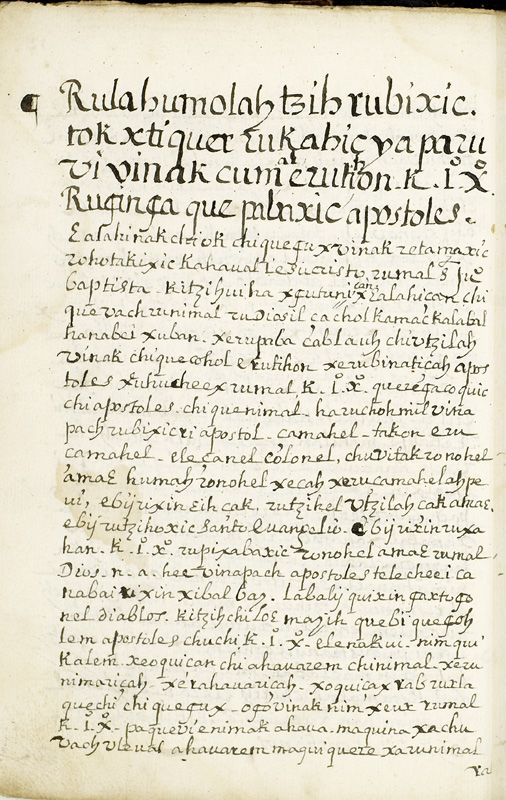 ¶ Rula humolah tzih rubixic.
tok xtiquer rukahic ya paru
vi vinak cumal erutihon. K. I. X.
Rugin ga que pabaxic apostoles.
Ealahinak chi ok chiquegux vinak retamaxic
rohotakixic kahaual Iesucristo, rumal S Juo
baptista. Kitzihui ha xgutuni can xEalahican chi
que vach runimal ru Diosil ca chol kamac kalabal
hanabei xuban. xerupaba cablauh chi vtzilah
vinak chique cohol erutihon xerubinatiçah apos
toles xuhucheex rumal K. I. X. queregaco quic
chi apostoles. chi quenimal haruchoh mil vina
pach rubixic ri apostol. camahel. takon eru
camahel. elecanel colonel, chu vitak ronohel
amaE humah ronohel xecah xeru camahelah pe
ui, ebij rixin Eih cak, rutzihel vtzilah cak amaE,
ebij rutzihoxic santo Euangelio. ebij rixin ruxa
han. K. I. X. rupixabaxic ronohel amaE rumal
Dios. n. a. hee vinapach apostoles telecheei ca
nabai xin xibalbay. labalij quixin gaxtogo
nel diablos. Kitzih chi loE mayih quebi quegoh
lem apostoles chuchi K. I. X. elenakui. nim qui
kalem. xeoquican chi ahauarem chinimal. xeru
nimariçah. xerahauariçah. xoquicax rabs rurla
quechi chiquegux. ogo vinak nim xeux rumal
K. I. X. paquevi enimak ahaua. maquina xachu
vach vleual ahauarem maqui quere xarunimal
ya